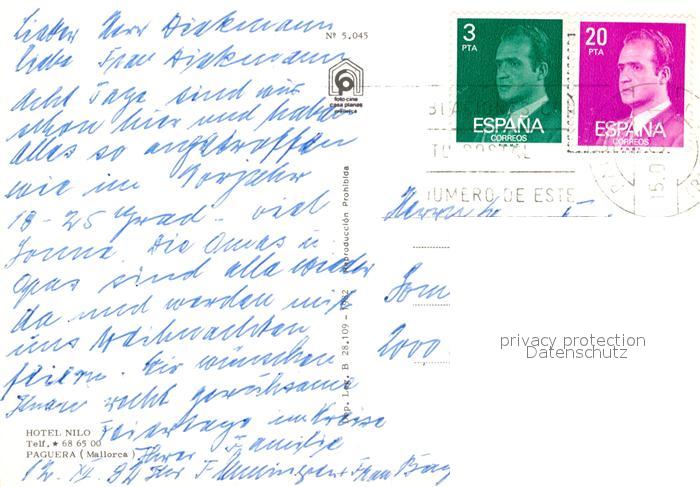 Lieber Herr Diekmann
liebe Frau Diekmann
Acht Tage sind wir
schon hier und haben
alles so angetroffen
wie im Vorjahr
18-25 Grad - viel
Sonne. Die Omas u.
Opas sind alle wieder
da und werden mit
uns Weihnachten
feiern. Wir wünschen
Ihnen recht geruhsame
Feiertage im Kreise
Ihrer Familie
Ihr
Nº 5.045
foto-cine
casa planas
mallorca
Reproducción Prohibida
Dep. Leg. B 28.109 - 1982
HOTEL NILO
Telf. ★ 68 65 00
PAGUERA (Mallorca)
3
PTA
ESPAÑA
CORREOS
20
PTA
ESPAÑA
CORREOS
POSTAL
NUMERO DE ESTE
Herrn
2000
privacy protection
Datenschutz